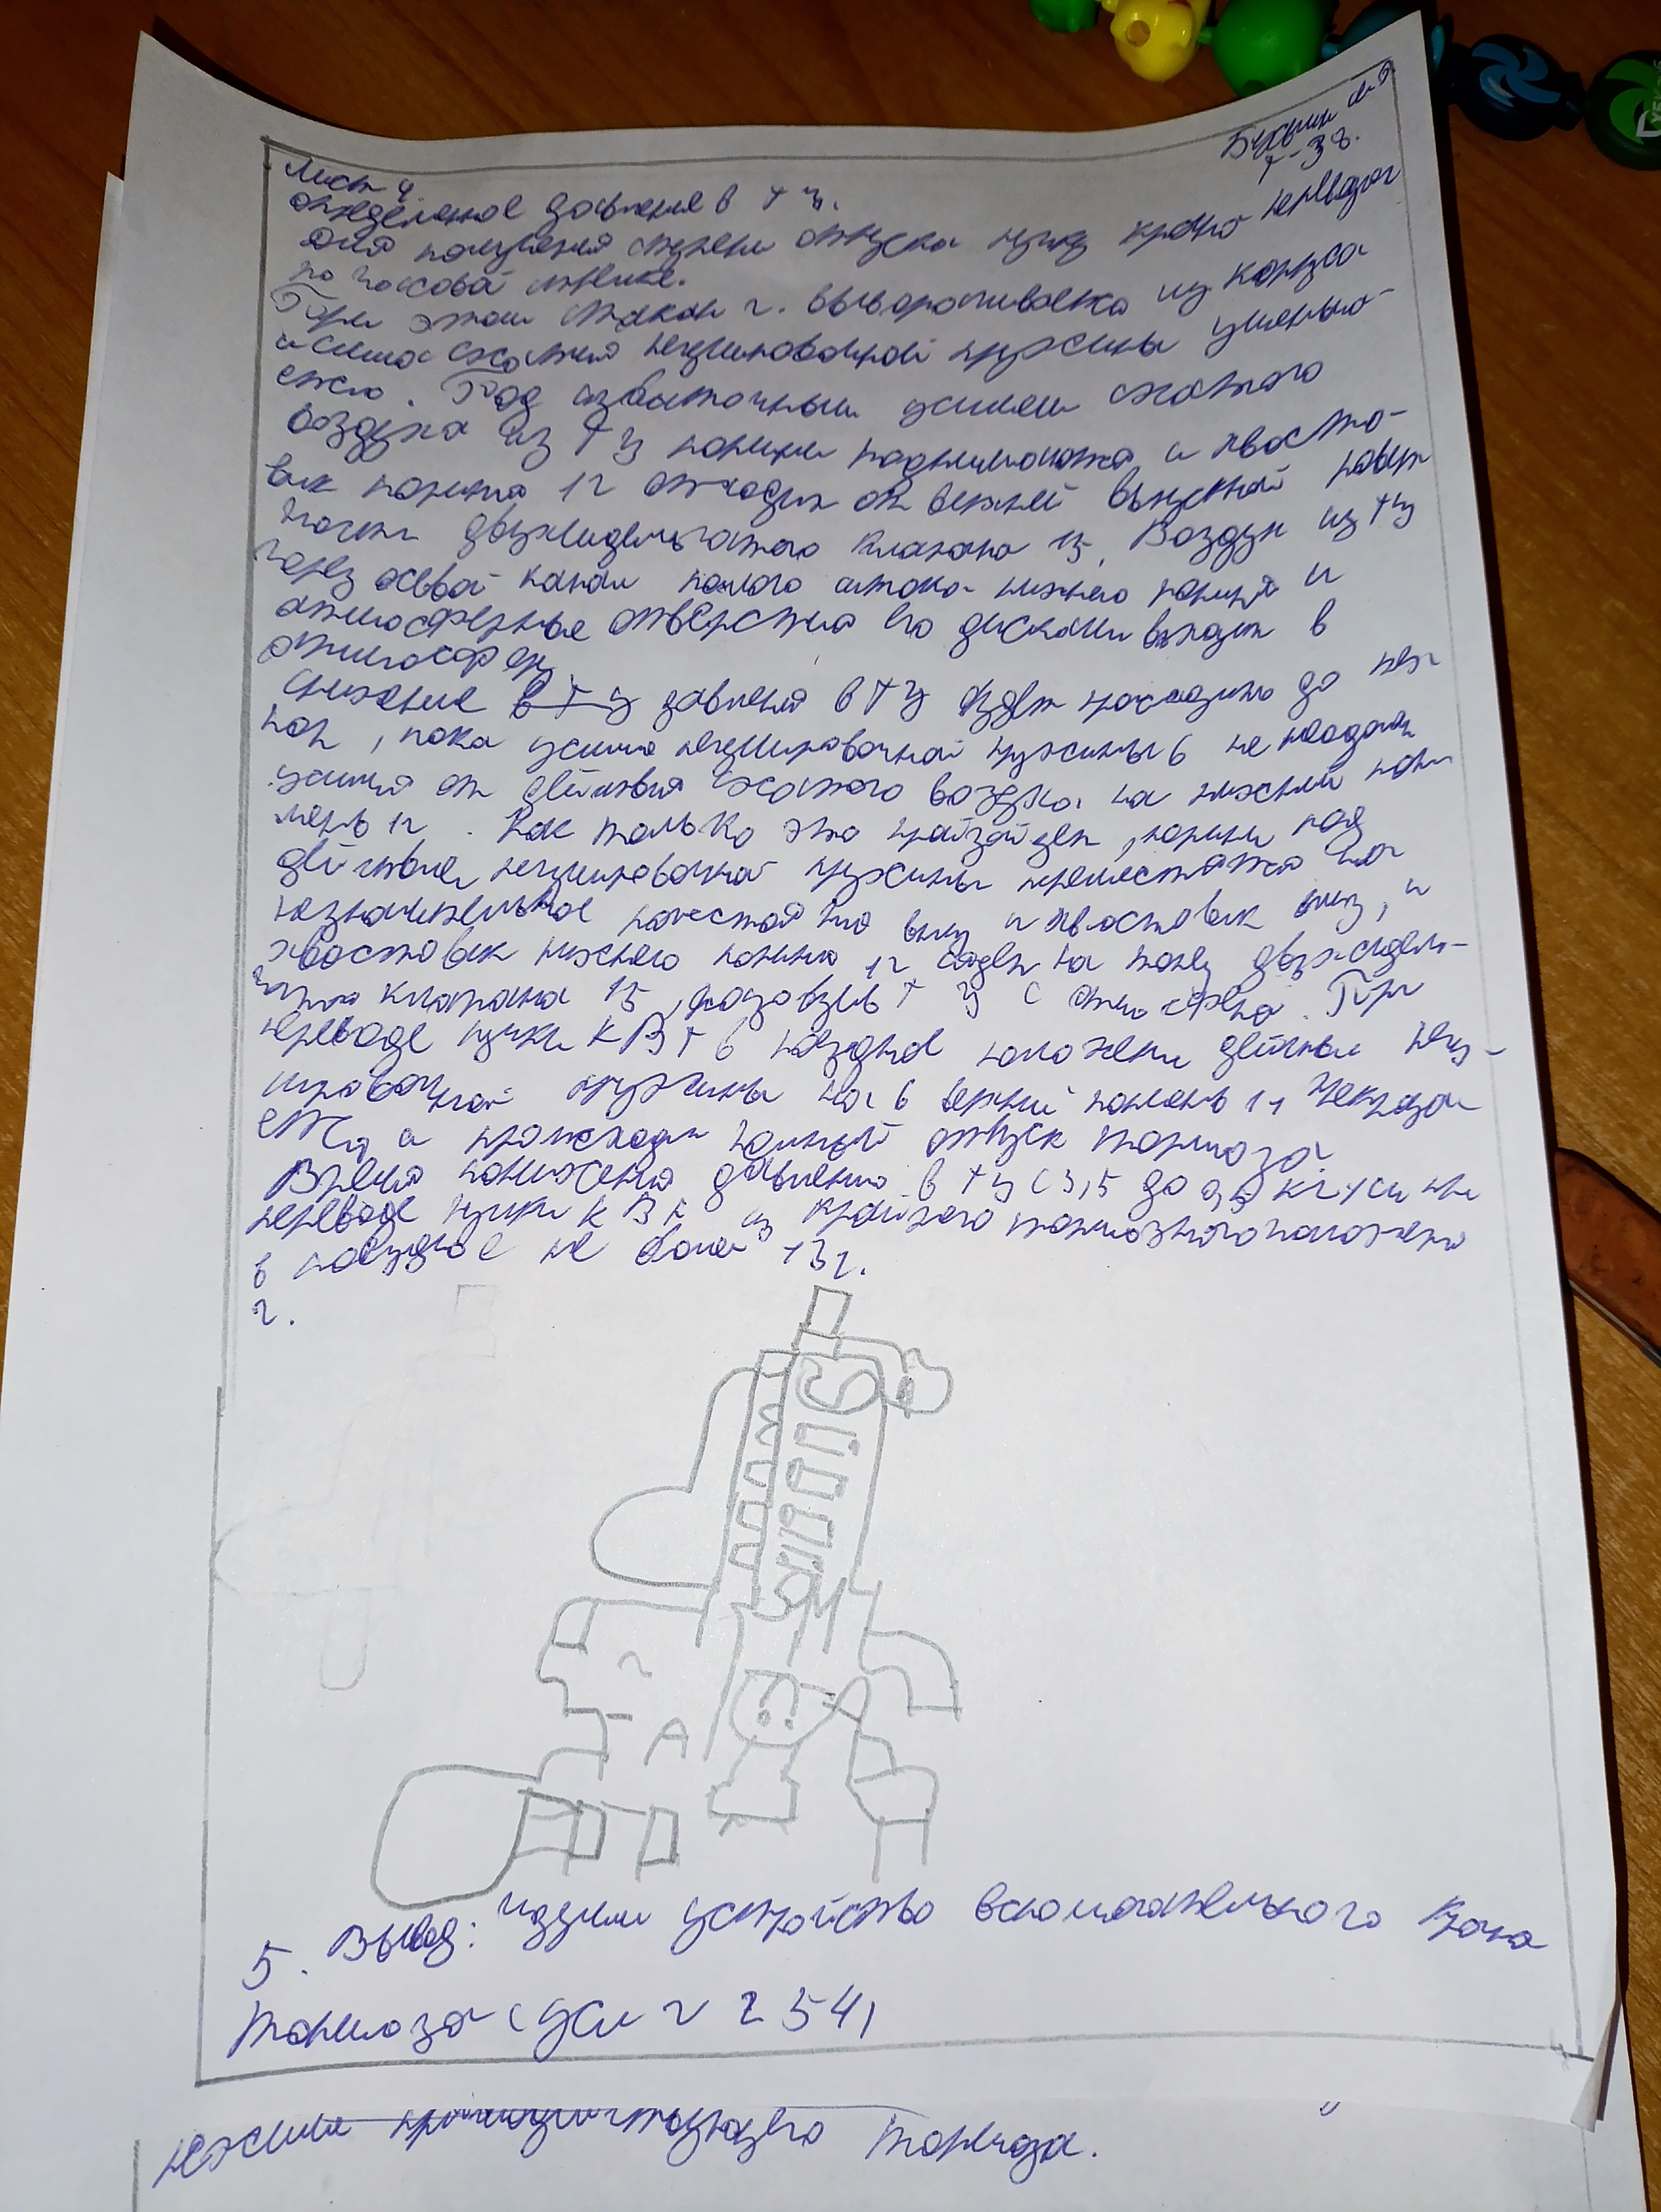 Лист 4
т-32.
определенное давление в ТЦ.
Для получения ступени отпуска ручку крана переводят
по часовой стрелке.
При этом стакан 2. выворачивается из корпуса
и сила сжатия регулировочной пружины уменьша-
ется. Под избыточным усилием сжатого
воздуха из ТЦ поршни поднимаются и хвосто-
вик поршня 12 отходит от верхней выпускной поверх
двухседельчатого клапана 15. Воздух из ТЦ
через осевой канал полого штока нижнего поршня и
атмосферные отверстия его дисками выходит в
атмосферу
снижение в ТЦ давления в ТЦ будет происходить до тех
пор, пока усилие регулировочной пружины 6 не преодолеет
усилия от действия сжатого воздуха на нижний пор
шень 12. Как только это произойдет, поршни под
действием регулировочной пружины переместятся на
незначительное вниз и хвостовик вниз, и
хвостовик нижнего поршня 12 сядет на двухседель-
клапана 15, ТЦ с атмосфера. При
переводе ручки КВТ в поездное положение действие регу-
лировочной пружины на верхний поршень 11 прекраща
ется а происходит полный отпуск тормоза.
Время понижения давления в ТЦ с 3,5 до 0,5 кгс/см при
переводе ручки КВТ из крайнего тормозного положения
в поездное не более 13с.
2.
2
А
5. Вывод: изучили устройство вспомогательного крана
тормоза усл 2 254,
тормоза.